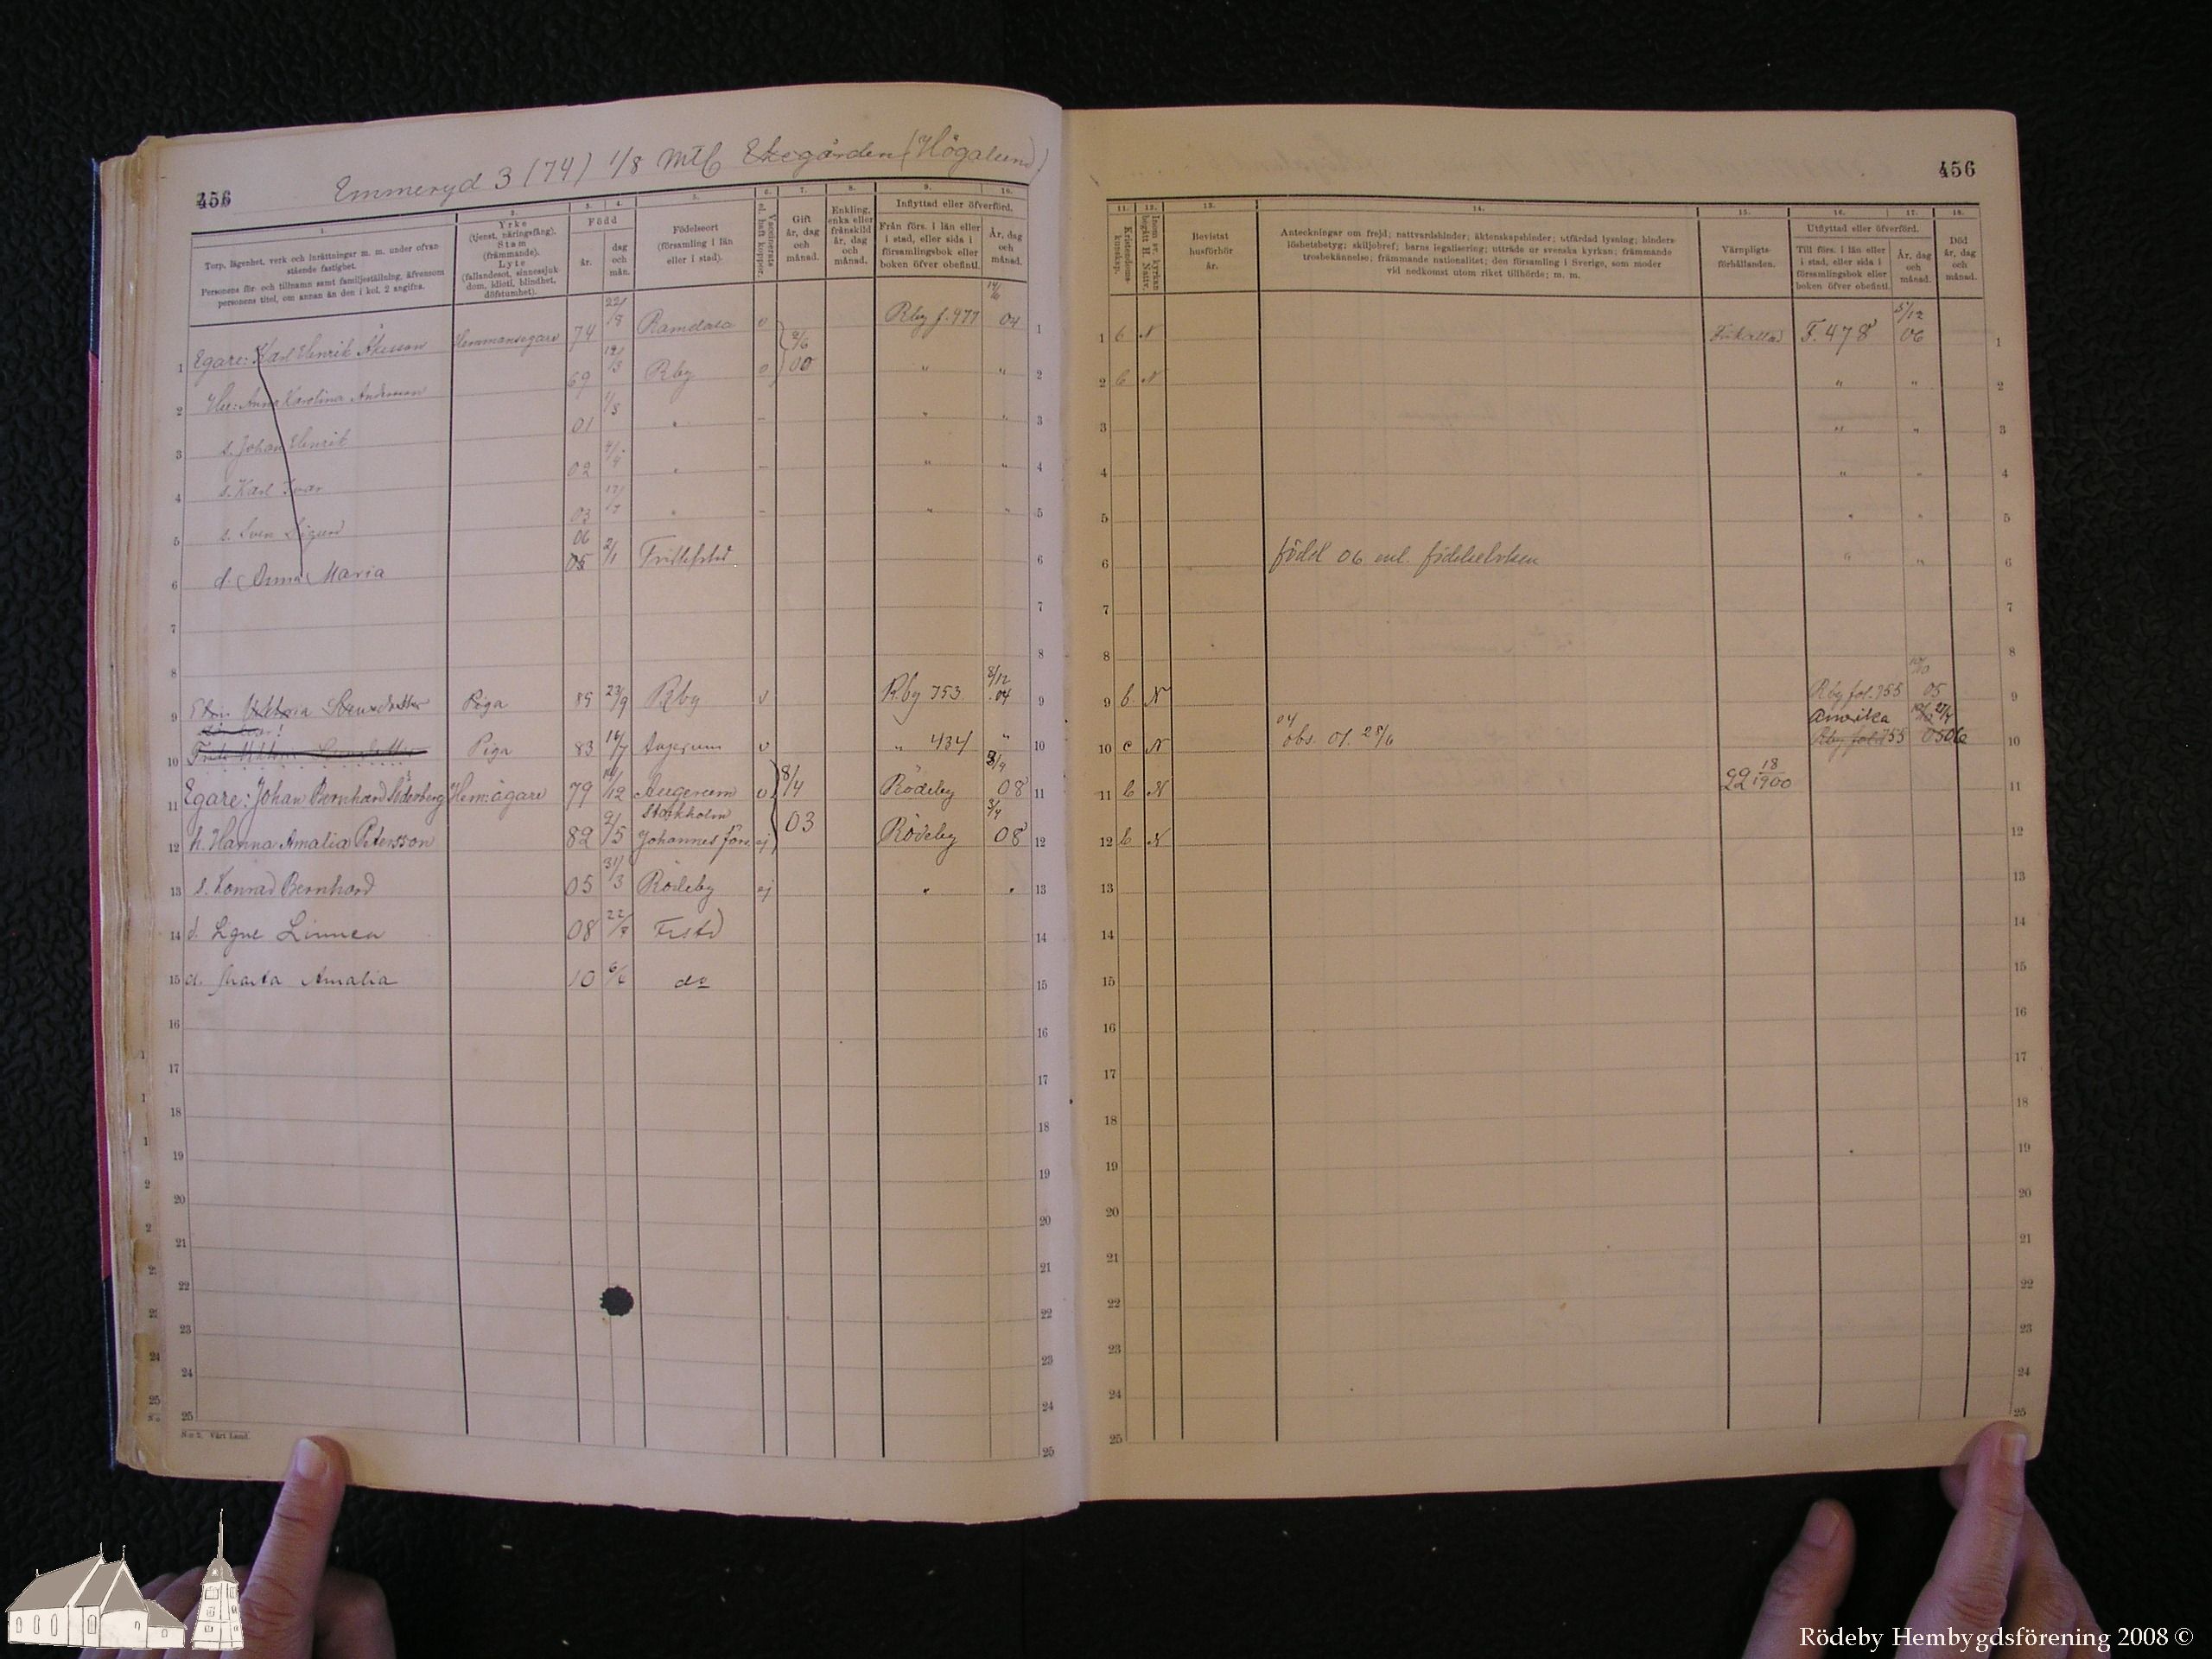 456
Emmeryd 3 (74) 1/8 mtl Ekegården (Högalund)
1. 2. 3. 4. 5. 6. 7. 8. 9. 10.
Torp, lägenhet, verk och inrättningar m. m. under ofvanstående fastighet.
Personens för- och tillnamn samt familjeställning, äfvensom personens titel, om annan än den i kol. 2 angifna.
Yrke (tjenst, näringsfång). Stam (främmande). Lyte (fallandesot, sinnessjukdom, idioti, blindhet, döfstumhet).
Född
år.
dag och mån.
Födelseort (församling i län eller i stad).
Vaccinerats el. haft koppor.
Gift år, dag och månad.
Enkling, enka eller frånskild år, dag och månad.
Inflyttad eller öfverförd.
Från förs. i län eller i stad, eller sida i församlingsbok eller boken öfver obefintl.
År, dag och månad.
1 Egare: Karl Henrik Åkesson Hemmansegare 74 22/8 Ramdala v 2/6 00 Rby f. 477 04 1
2 Hu: Anna Karolina Andersson 69 Rby v " " 2
3 s. Johan Henrik 01 1/8 " – " " 3
4 s. Karl Ivar 02 " – " " 4
5 s. Sven Sigurd 03 17/7 " – " " 5
6 d. (Anna) Maria 06 05 2/1 Fridlefstad 6
7 7
8 8
9 Viktoria Svensdotter Piga 85 23/9 Rby v Rby 353 8/12 04 9
10 Piga 83 16/7 Augerum v " 434 " 10
11 Egare: Johan Bernhard Söderberg Hem:ägare 79 /12 Augerum v 8/4 03 Rödeby 3/9 08 11
12 h. Hanna Amalia Petersson 82 2/5 Stockholm Johannes förs. ej Rödeby 3/9 08 12
13 s. Konrad Bernhard 05 31/3 Rödeby ej " " 13
14 d. Signe Linnea 08 22/ Frstd 14
15 d. Märta Amalia 10 6/6 do 15
16 16
17 17
18 18
19 19
20 20
21 21
22 22
23 23
24 24
25 25
N:o 2. Vårt Land.
456
11. 12. 13. 14. 15. 16. 17. 18.
Kristendomskunskap.
Inom sv. kyrkan begått H. Nattv.
Bevistat husförhör år.
Anteckningar om frejd; nattvardshinder; äktenskapshinder; utfärdad lysning; hinderslöshetsbetyg; skiljobref; barns legalisering; utträde ur svenska kyrkan; främmande trosbekännelse; främmande nationalitet; den församling i Sverige, som moder vid nedkomst utom riket tillhörde; m. m.
Värnpligtsförhållanden.
Utflyttad eller öfverförd.
Till förs. i län eller i stad, eller sida i församlingsbok eller boken öfver obefintl.
År, dag och månad.
Död år, dag och månad.
1 b N F. 478 5/12 06 1
2 b N " " 2
3 " " 3
4 " " 4
5 " " 5
6 född 06 enl. födelseboken " " 6
7 7
8 8
9 b N Rby fol. 755 05 9
10 c N obs. 04 01. 28/6 Amerika Rby fol. 755 05 06 10
11 b N 22 18/1900 11
12 b N 12
13 13
14 14
15 15
16 16
17 17
18 18
19 19
20 20
21 21
22 22
23 23
24 24
25 25
Rödeby Hembygdsförening 2008 ©